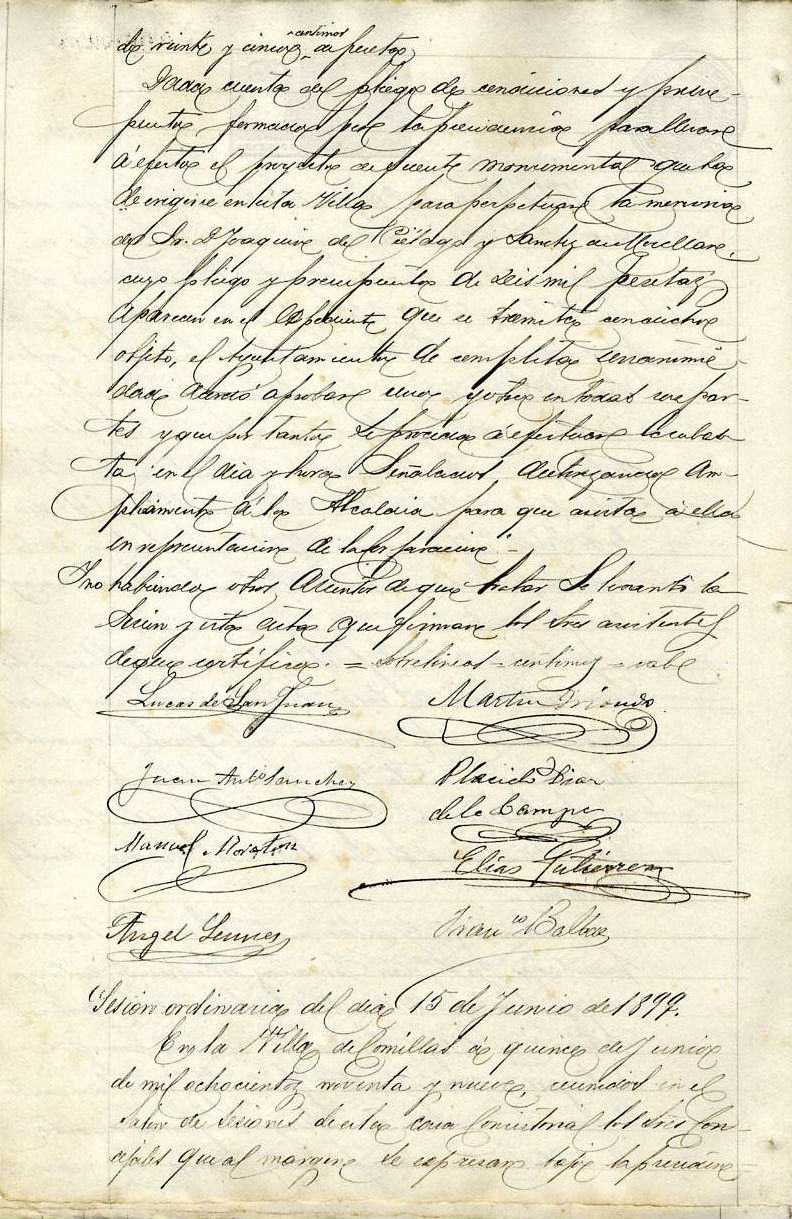 céntimos
de veinte y cinco de peseta
Dada cuenta del pliego de condiciones y presu-
puesto formado por la presidencia para llevar
á efecto el proyecto de fuente monumental que ha
de erigirse en esta Villa para perpetuar la memoria
del Sr. D. Joaquin del Piélago y Sanchez de Movellan,
cuyo pliego y presupuesto de seis mil pesetas
aparecen en el expediente que se tramita con dicho
objeto, el Ayuntamiento de completa unanimi-
dad acordó aprobar uno y otro en todas sus par-
tes y que por tanto se proceda á efectuar la subas-
ta, en el dia y hora señalados autorizando am-
pliamente á la Alcaldia para que asista á ella
en representacion de la Corporacion.-
Y no habiendo otros asuntos de que tratar se levantó la
sesion y esta acta que firman los Sres asistentes
de que certifico. = sobrelineas = céntimos = vale
Lucas de San Juan
Martin Iriondo
Juan Anto Sanchez
Placido Diaz
de la Campa
Manuel
Elías Gutierrez
Angel
Franco Balbas
Sesion ordinaria del dia 15 de Junio de 1899.
En la Villa de Comillas á quince de Junio
de mil ochocientos noventa y nueve, reunidos en el
Salon de Sesiones de esta casa Consistorial los Sres Con-
cejales que al margen se expresan bajo la presiden-